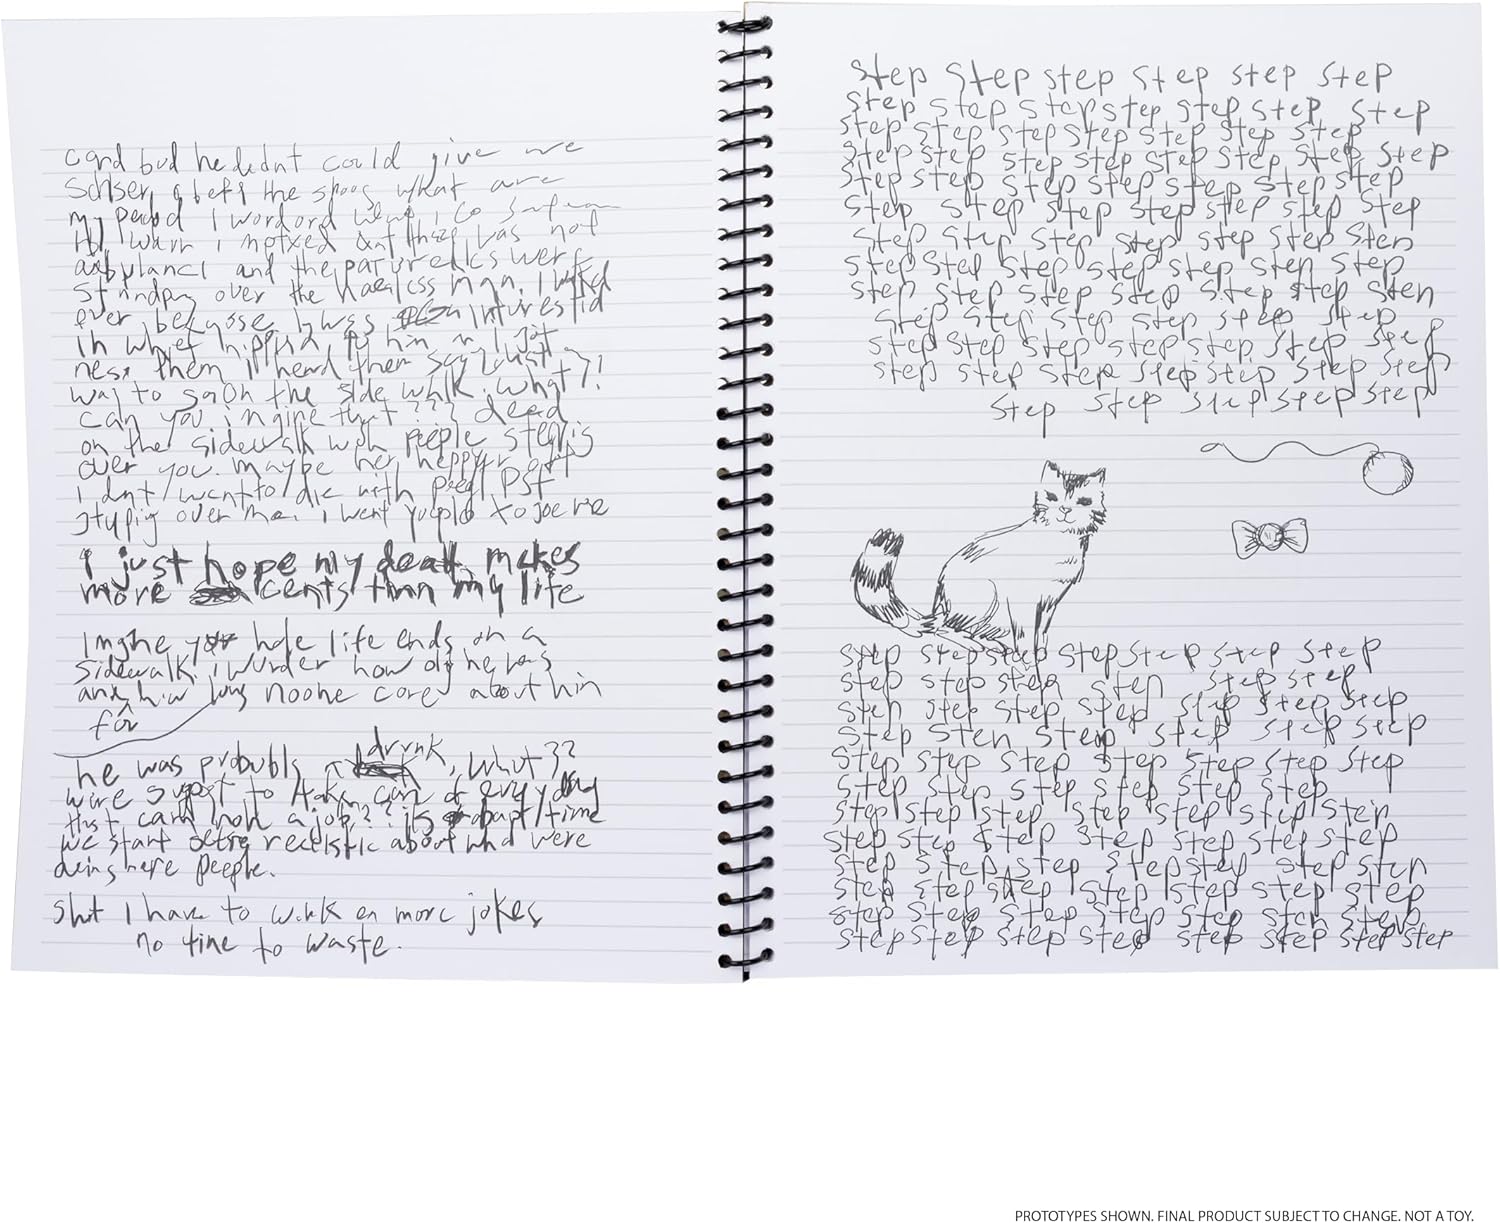 card bud he didnt could give me
left the what are
my period I word ord
Hy i notxed that there was not
ambulancl and the were
standing over the man. I looked
over becquse I was inturestid
in whet hippind to him
next them I heard them say
way to go on the side walk. What?!
can you imgine that??? dead
on the sidewalk with people
over you. maybe her heppyer off
I dont want to die with
over me. i want to
I just hope my death makes
more cents than my life
Imgne your hole life ends on a
sidewalk. i wunder how old he was
and how long noone cared about him
for
he was probubly drunk, What??
were supost to take care of everyday
that cant hold a job?? its abaut time
we start about who were
here people.
shit I have to work on more jokes
no time to waste.
step step step step step step
step step step step step step step
step step step step step step step
step step step step step step step
step step step step step step step
step step step step step step step
step step step step step step step
step step step step step step step
step step step step step step step
step step step step step step
step step step step step step step
step step step step step step step
step step step step step
step step step step step step step
step step step step step step
step step step step step step step
step step step step step step
step step step step step step step
step step step step step step
step step step step step step step
step step step step step step step
step step step step step step step
step step step step step step step
step step step step step step step
step step step step step step step step
PROTOTYPES SHOWN. FINAL PRODUCT SUBJECT TO CHANGE. NOT A TOY.